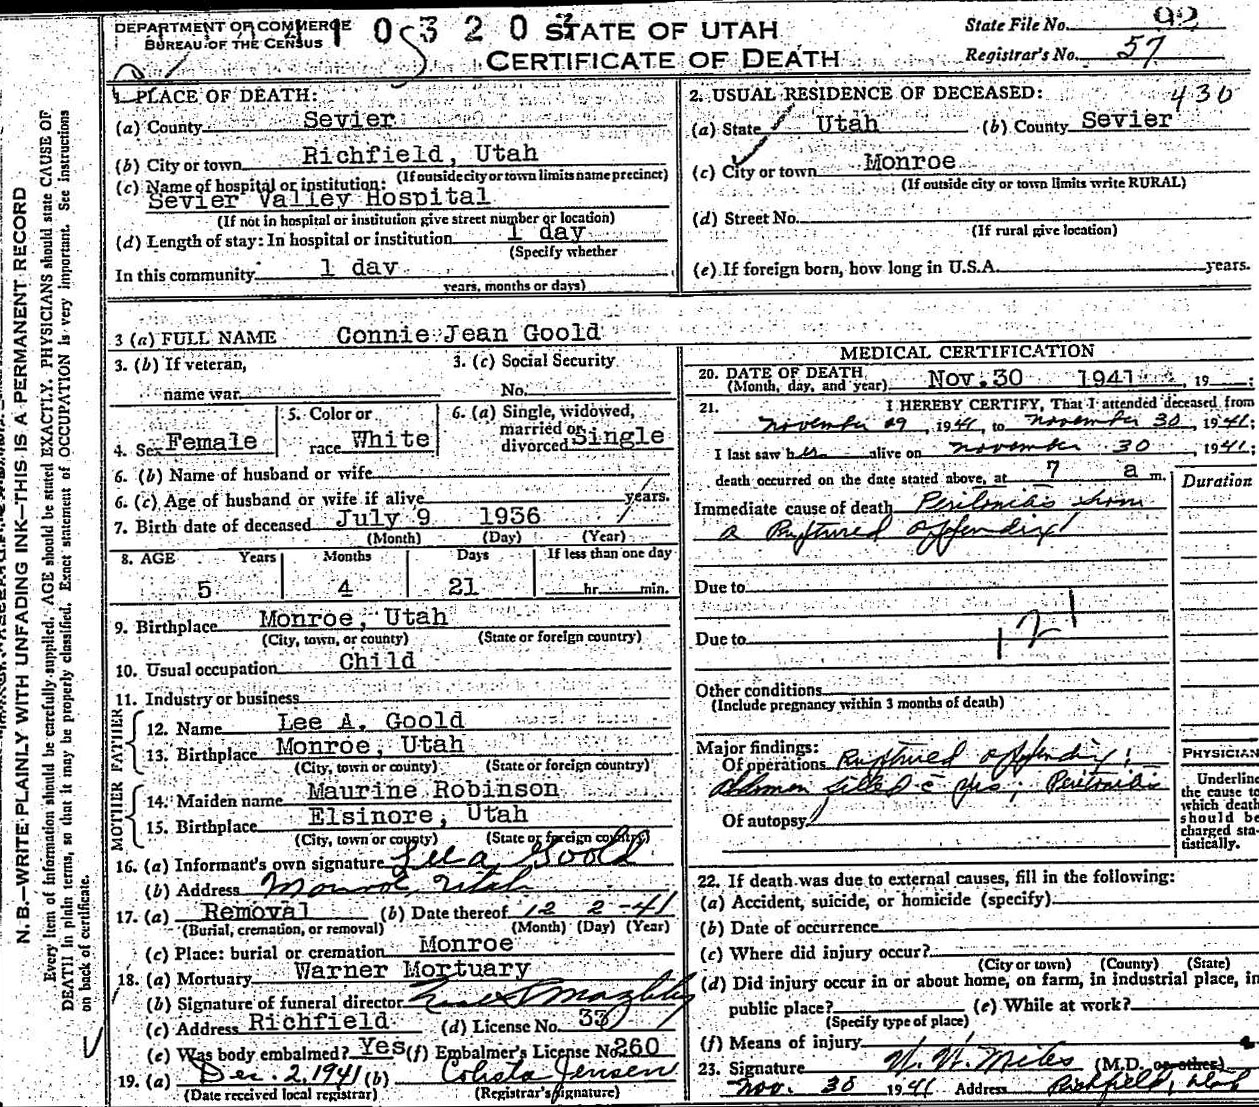 DEPARTMENT OF COMMERCE
BUREAU OF THE CENSUS
0 3 2 0
STATE OF UTAH
CERTIFICATE OF DEATH
State File No. 92
Registrar's No. 57
1. PLACE OF DEATH:
(a) County Sevier
(b) City or town Richfield, Utah
(If outside city or town limits name precinct)
(c) Name of hospital or institution:
Sevier Valley Hospital
(If not in hospital or institution give street number or location)
(d) Length of stay: In hospital or institution 1 day
(Specify whether
In this community 1 day
years, months or days)
2. USUAL RESIDENCE OF DECEASED: 430
(a) State Utah (b) County Sevier
(c) City or town Monroe
(If outside city or town limits write RURAL)
(d) Street No.
(If rural give location)
(e) If foreign born, how long in U.S.A. years.
3 (a) FULL NAME Connie Jean Goold
3. (b) If veteran,
name war
3. (c) Social Security
No.
4. Sex Female
5. Color or
race White
6. (a) Single, widowed,
married or
divorced Single
6. (b) Name of husband or wife
6. (c) Age of husband or wife if alive years.
7. Birth date of deceased July 9 1936
(Month) (Day) (Year)
8. AGE Years Months Days If less than one day
5 4 21 hr. min.
9. Birthplace Monroe, Utah
(City, town, or county) (State or foreign country)
10. Usual occupation Child
11. Industry or business
FATHER
12. Name Lee A. Goold
13. Birthplace Monroe, Utah
(City, town or county) (State or foreign country)
MOTHER
14. Maiden name Maurine Robinson
15. Birthplace Elsinore, Utah
(City, town or county) (State or foreign country)
16. (a) Informant's own signature Lee A Goold
(b) Address Monroe, Utah
17. (a) Removal (b) Date thereof 12 2 -41
(Burial, cremation, or removal) (Month) (Day) (Year)
(c) Place: burial or cremation Monroe
18. (a) Mortuary Warner Mortuary
(b) Signature of funeral director
(c) Address Richfield (d) License No. 33
(e) Was body embalmed? Yes (f) Embalmer's License No. 260
19. (a) Dec. 2, 1941 (b) Jensen
(Date received local registrar) (Registrar's signature)
MEDICAL CERTIFICATION
20. DATE OF DEATH
(Month, day, and year) Nov. 30 1941, 19
21. I HEREBY CERTIFY, That I attended deceased from
November 29, 1941, to November 30, 1941;
I last saw her alive on November 30, 1941;
death occurred on the date stated above, at 7 a m.
Duration
Immediate cause of death Peritonitis from
a Ruptured appendix!
Due to
Due to
121
Other conditions
(Include pregnancy within 3 months of death)
Major findings:
Of operations Ruptured appendix;
Abdomen filled c pus, Peritonitis
Of autopsy
PHYSICIAN
Underline
the cause to
which death
should be
charged sta-
tistically.
22. If death was due to external causes, fill in the following:
(a) Accident, suicide, or homicide (specify)
(b) Date of occurrence
(c) Where did injury occur?
(City or town) (County) (State)
(d) Did injury occur in or about home, on farm, in industrial place, in
public place? (e) While at work?
(Specify type of place)
(f) Means of injury
23. Signature W. W. Miles (M.D. or other)
Nov. 30 1941 Address Richfield, Utah
N. B.—WRITE PLAINLY WITH UNFADING INK—THIS IS A PERMANENT RECORD
Every item of information should be carefully supplied. AGE should be stated EXACTLY. PHYSICIANS should state CAUSE OF
DEATH in plain terms, so that it may be properly classified. Exact statement of OCCUPATION is very important. See instructions
on back of certificate.